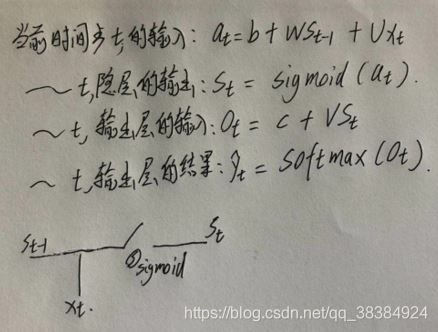 当前时间步t,的输入: at = b + WSt-1 + Uxt
～ t,隐层的输出: St = sigmoid(at).
～ t,输出层的输入: Ot = c + VSt
～ t,输出层的结果: ŷt = softmax(Ot).
St-1
St
①sigmoid
xt.
https://blog.csdn.net/qq_38384924